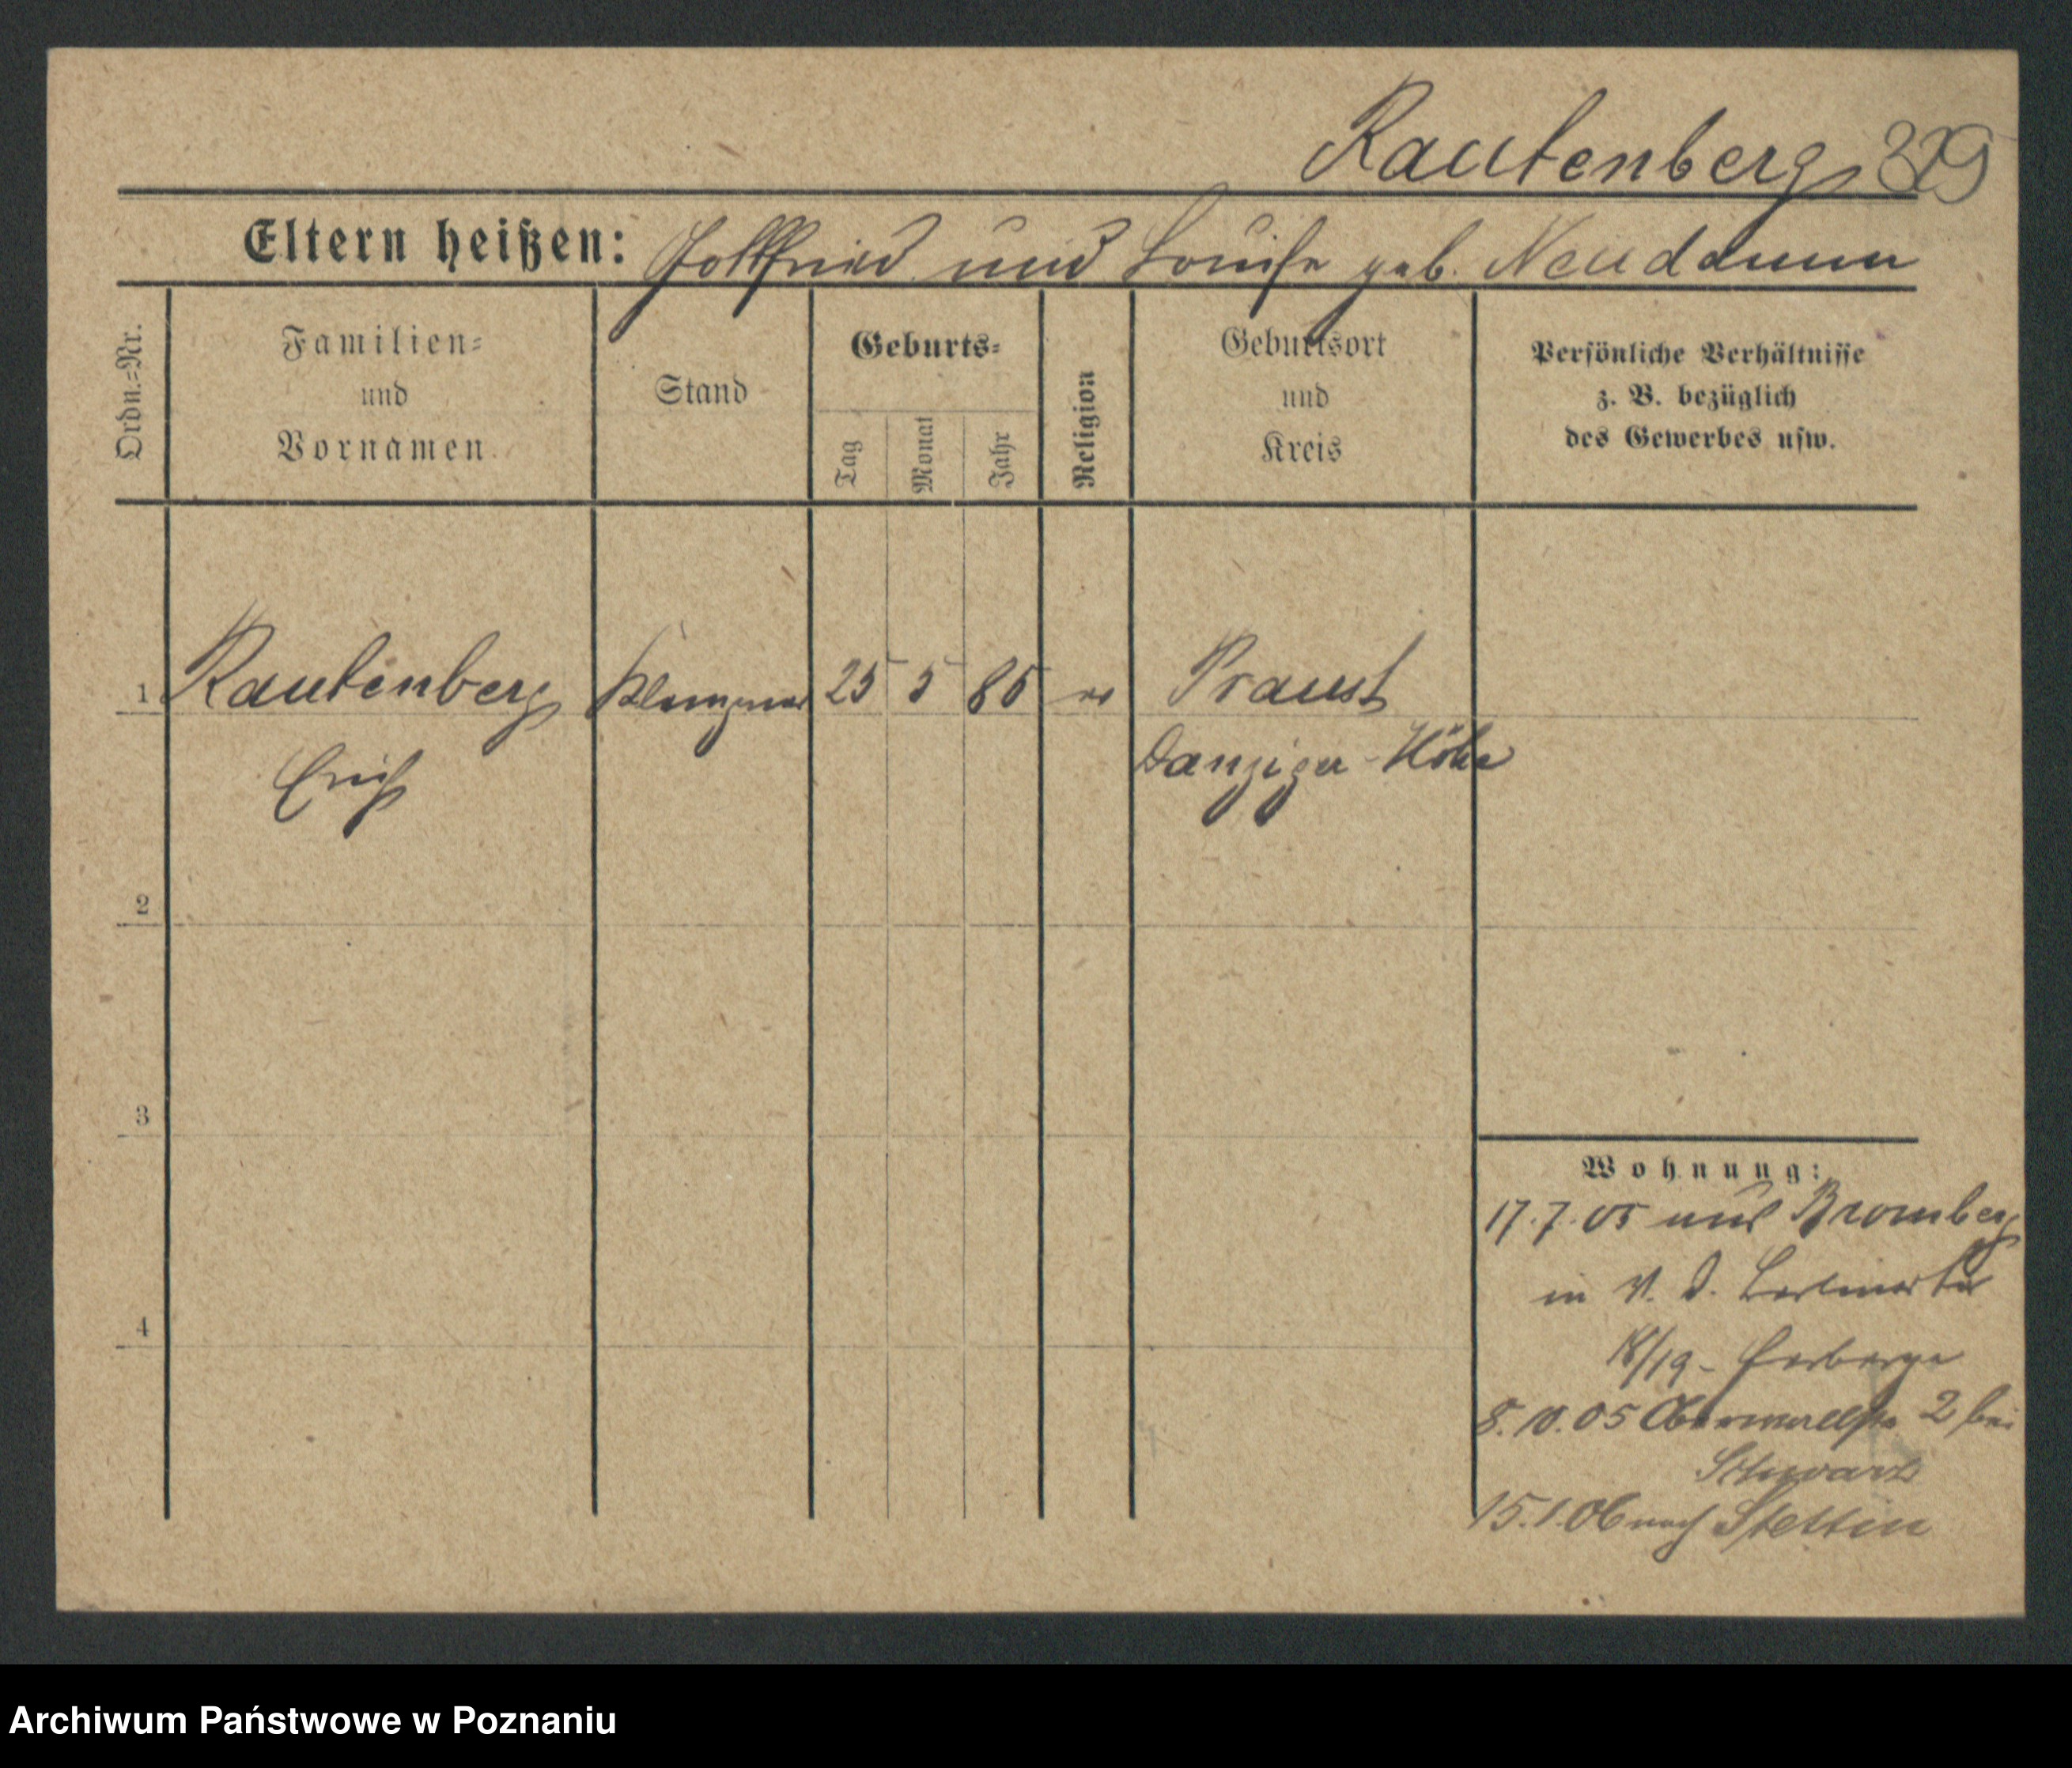 Rautenberg 329
Eltern heißen: Gottfried und Louise geb. Neudamm
Ordn.=Nr.
Familien=
und
Vornamen
Stand
Geburts=
Tag
Monat
Jahr
Religion
Geburtsort
und
Kreis
Persönliche Verhältnisse
z. B. bezüglich
des Gewerbes usw.
1 Rautenberg Klempner 25 5 85 ev Praust
Erich Danziger-Höhe
2
3
4
Wohnung:
17.7.05 aus Bromberg
in V. d. Berlinertor
18/19 - Herberge
8.10.05 Oberwallstr. 2 bei
Schwarz
15.1.06 nach Stettin
Archiwum Państwowe w Poznaniu